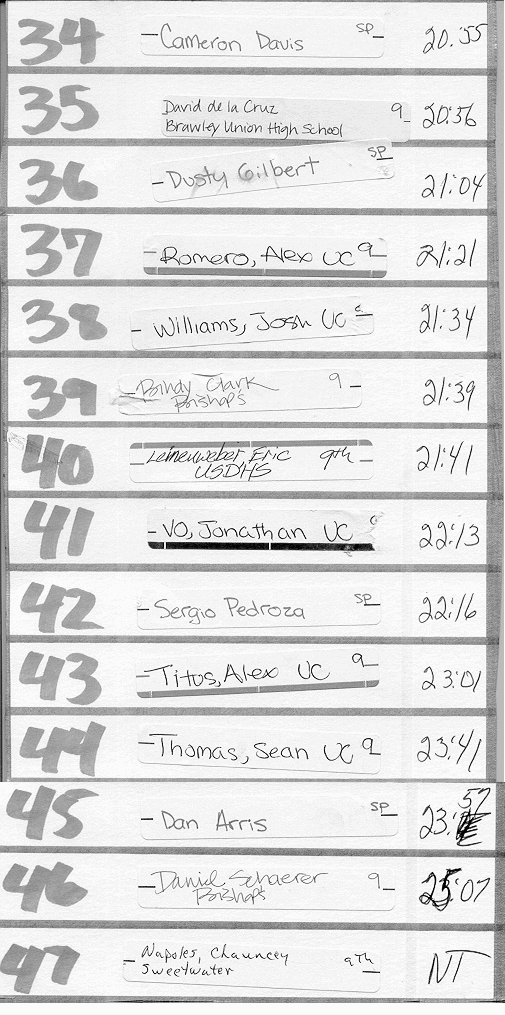 34 Cameron Davis SP 20:55
35 David de la Cruz 9 20:56
Brawley Union High School
36 Dusty Gilbert SP 21:04
37 Romero, Alex UC 9 21:21
38 Williams, Josh UC 21:34
39 Clark 9 21:39
Bishop's
40 Leineuweber, Eric 9th 21:41
USDHS
41 Vo, Jonathan UC 22:13
42 Sergio Pedroza SP 22:16
43 Titus, Alex UC 9 23:01
44 Thomas, Sean UC 9 23:41
45 Dan Arris SP 23:57
46 Daniel Schaerer 9 25:07
Bishop's
47 Napoles, Chauncey 9th NT
Sweetwater